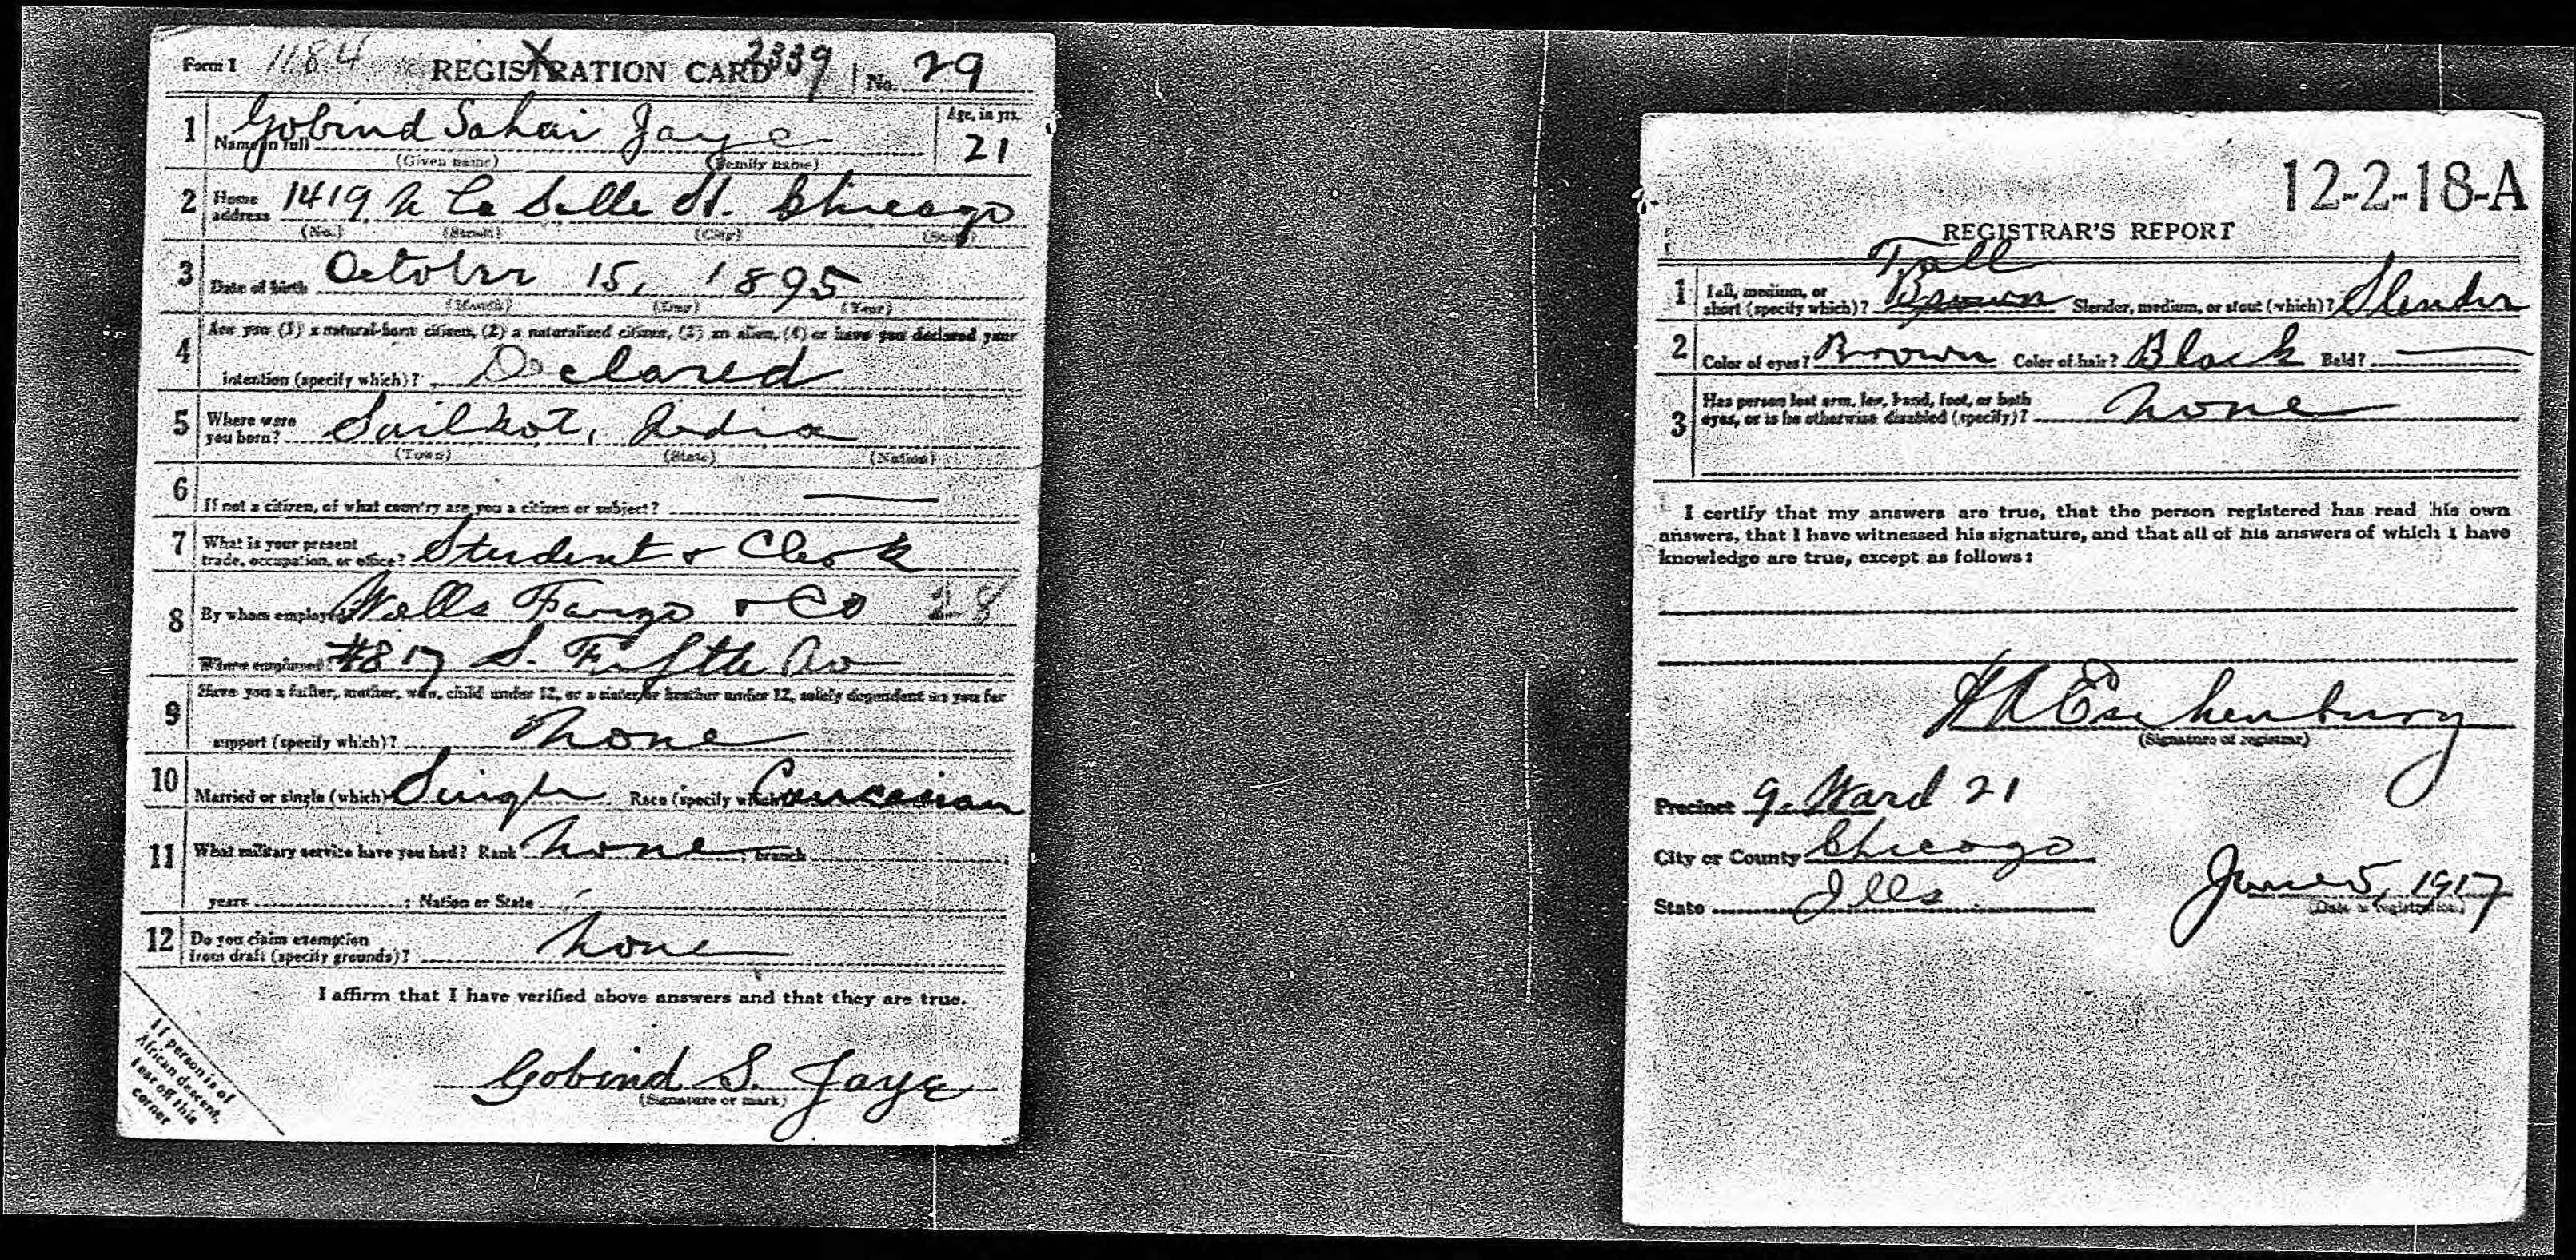 Form 1 1184 REGISTRATION CARD 2339 No. 29
1 Name in full Gobind Sahai Jaye Age, in yrs. 21
(Given name) (Family name)
2 Home address 1419 N La Salle St. Chicago
(No.) (Street) (City) (State)
3 Date of birth October 15, 1895
(Month) (Day) (Year)
4 Are you (1) a natural-born citizen, (2) a naturalized citizen, (3) an alien, (4) or have you declared your
intention (specify which)? Declared
5 Where were you born? Sailkot, India
(Town) (State) (Nation)
6 If not a citizen, of what country are you a citizen or subject? —
7 What is your present trade, occupation, or office? Student & Clerk
8 By whom employed? Wells Fargo & Co 28
Where employed? #817 S. Fifth Av
9 Have you a father, mother, wife, child under 12, or a sister or brother under 12, solely dependent on you for
support (specify which)? None
10 Married or single (which)? Single Race (specify which)? Caucasian
11 What military service have you had? Rank None ; branch ;
years ; Nation or State
12 Do you claim exemption from draft (specify grounds)? None
I affirm that I have verified above answers and that they are true.
Gobind S. Jaye
(Signature or mark)
If person is of
African descent,
tear off this
corner
12-2-18-A
REGISTRAR'S REPORT
Tall
1 Tall, medium, or short (specify which)? Brown Slender, medium, or stout (which)? Slender
2 Color of eyes? Brown Color of hair? Black Bald? —
3 Has person lost arm, leg, hand, foot, or both
eyes, or is he otherwise disabled (specify)? None
I certify that my answers are true, that the person registered has read his own
answers, that I have witnessed his signature, and that all of his answers of which I have
knowledge are true, except as follows:
Eschenburg
(Signature of registrar)
Precinct 9. Ward 21
City or County Chicago
State Ills June 5, 1917
(Date of registration)